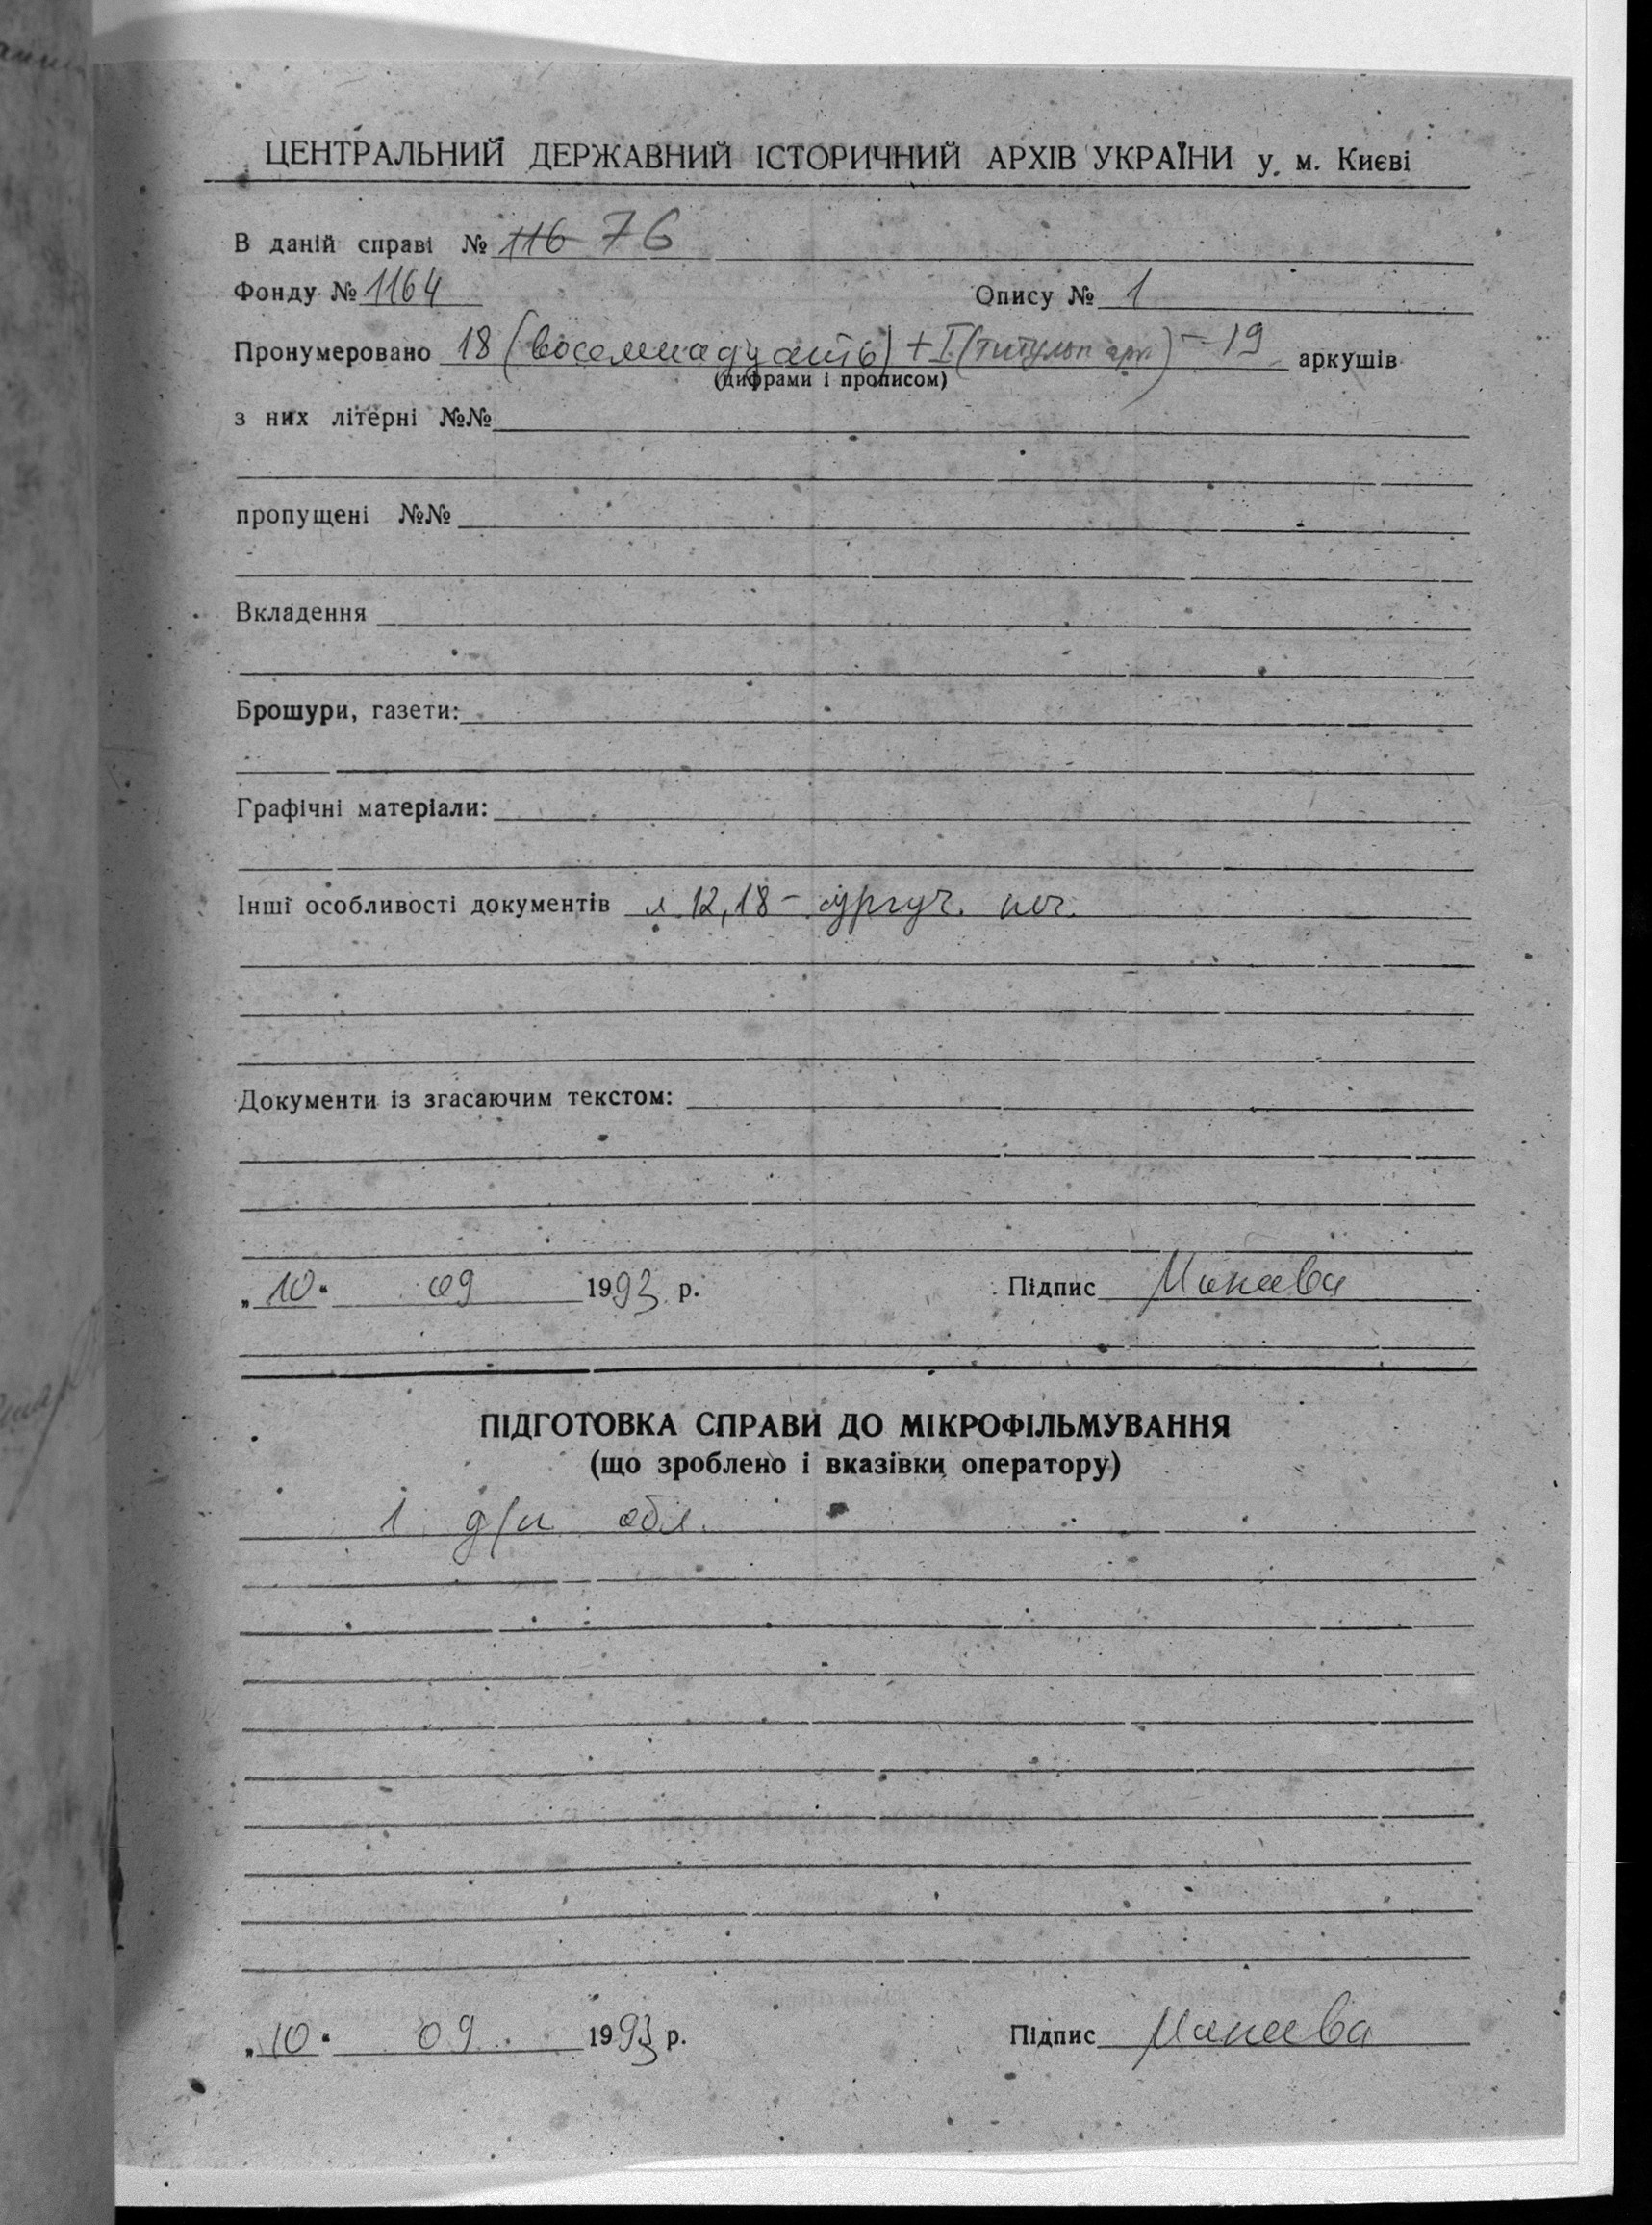 ЦЕНТРАЛЬНИЙ ДЕРЖАВНИЙ ІСТОРИЧНИЙ АРХІВ УКРАЇНИ у м. Києві
В даній справі № 116 76
Фонду № 1164 Опису № 1
Пронумеровано 18 (восемнадцать) + I (титульн арк.) – 19 аркушів
(цифрами і прописом)
з них літерні №№
пропущені №№
Вкладення
Брошури, газети:
Графічні матеріали:
Інші особливості документів л. 12, 18 – сургуч. печ.
Документи із згасаючим текстом:
„10“ 09 1993 р. Підпис
ПІДГОТОВКА СПРАВИ ДО МІКРОФІЛЬМУВАННЯ
(що зроблено і вказівки оператору)
1 д/п обл.
„10“ 09 1993 р. Підпис